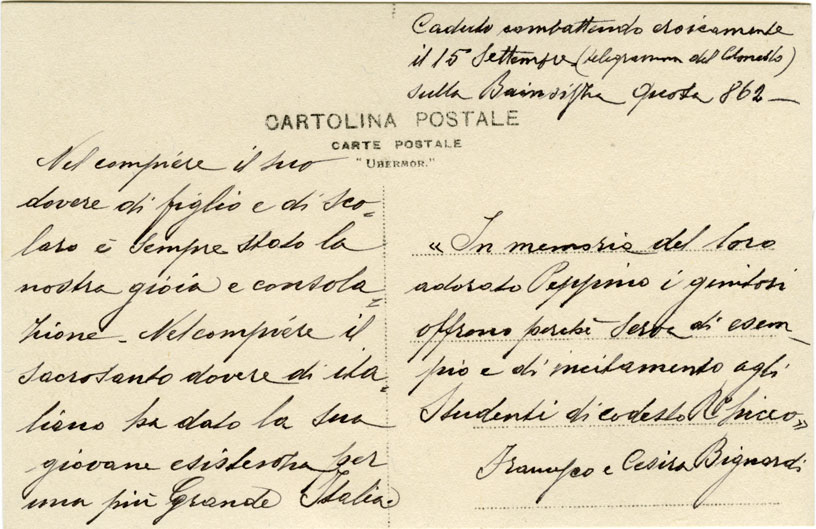 Caduto combattendo eroicamente
il 15 Settembre (telegramma del Colonello)
sulla Bainsizza Quota 862 —
CARTOLINA POSTALE
CARTE POSTALE
"UBERMOR."
Nel compiére il suo
dovere di figlio e di sco=
laro è sempre stato la
nostra gioia e consola=
zione - Nel compiére il
sacrosanto dovere di ita=
liano ha dato la sua
giovane esistenza per
una più Grande Italia.
« In memoria del loro
adorato Peppino i genitori
offrono perchè serva di esem-
pio e di incitamento agli
Studenti di codesto R° Liceo»
Francesco e Cesira Bignardi